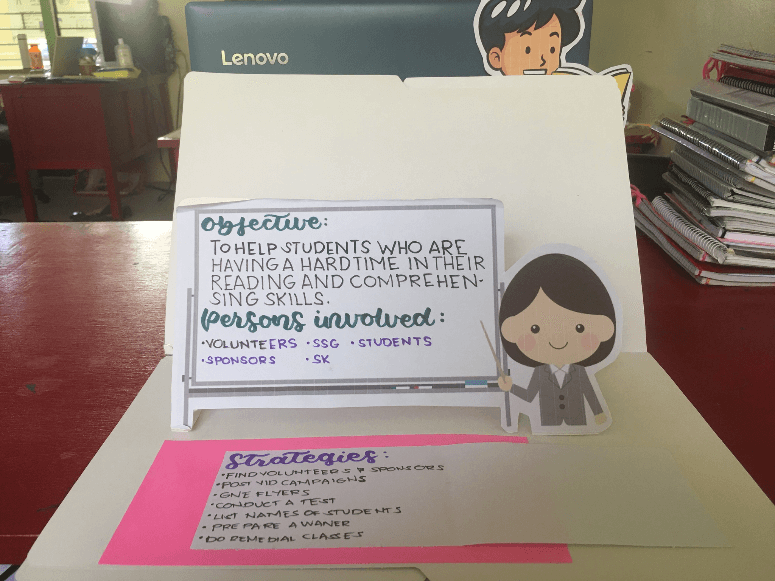 Lenovo
Objective:
TO HELP STUDENTS WHO ARE
HAVING A HARD TIME IN THEIR
READING AND COMPREHEN-
SING SKILLS.
Persons involved:
•VOLUNTEERS •SSG •STUDENTS
•SPONSORS •SK
Strategies:
•FIND VOLUNTEERS & SPONSORS
•POST VID CAMPAIGNS
•GIVE FLYERS
•CONDUCT A TEST
•LIST NAMES OF STUDENTS
•PREPARE A WAIVER
•DO REMEDIAL CLASSES